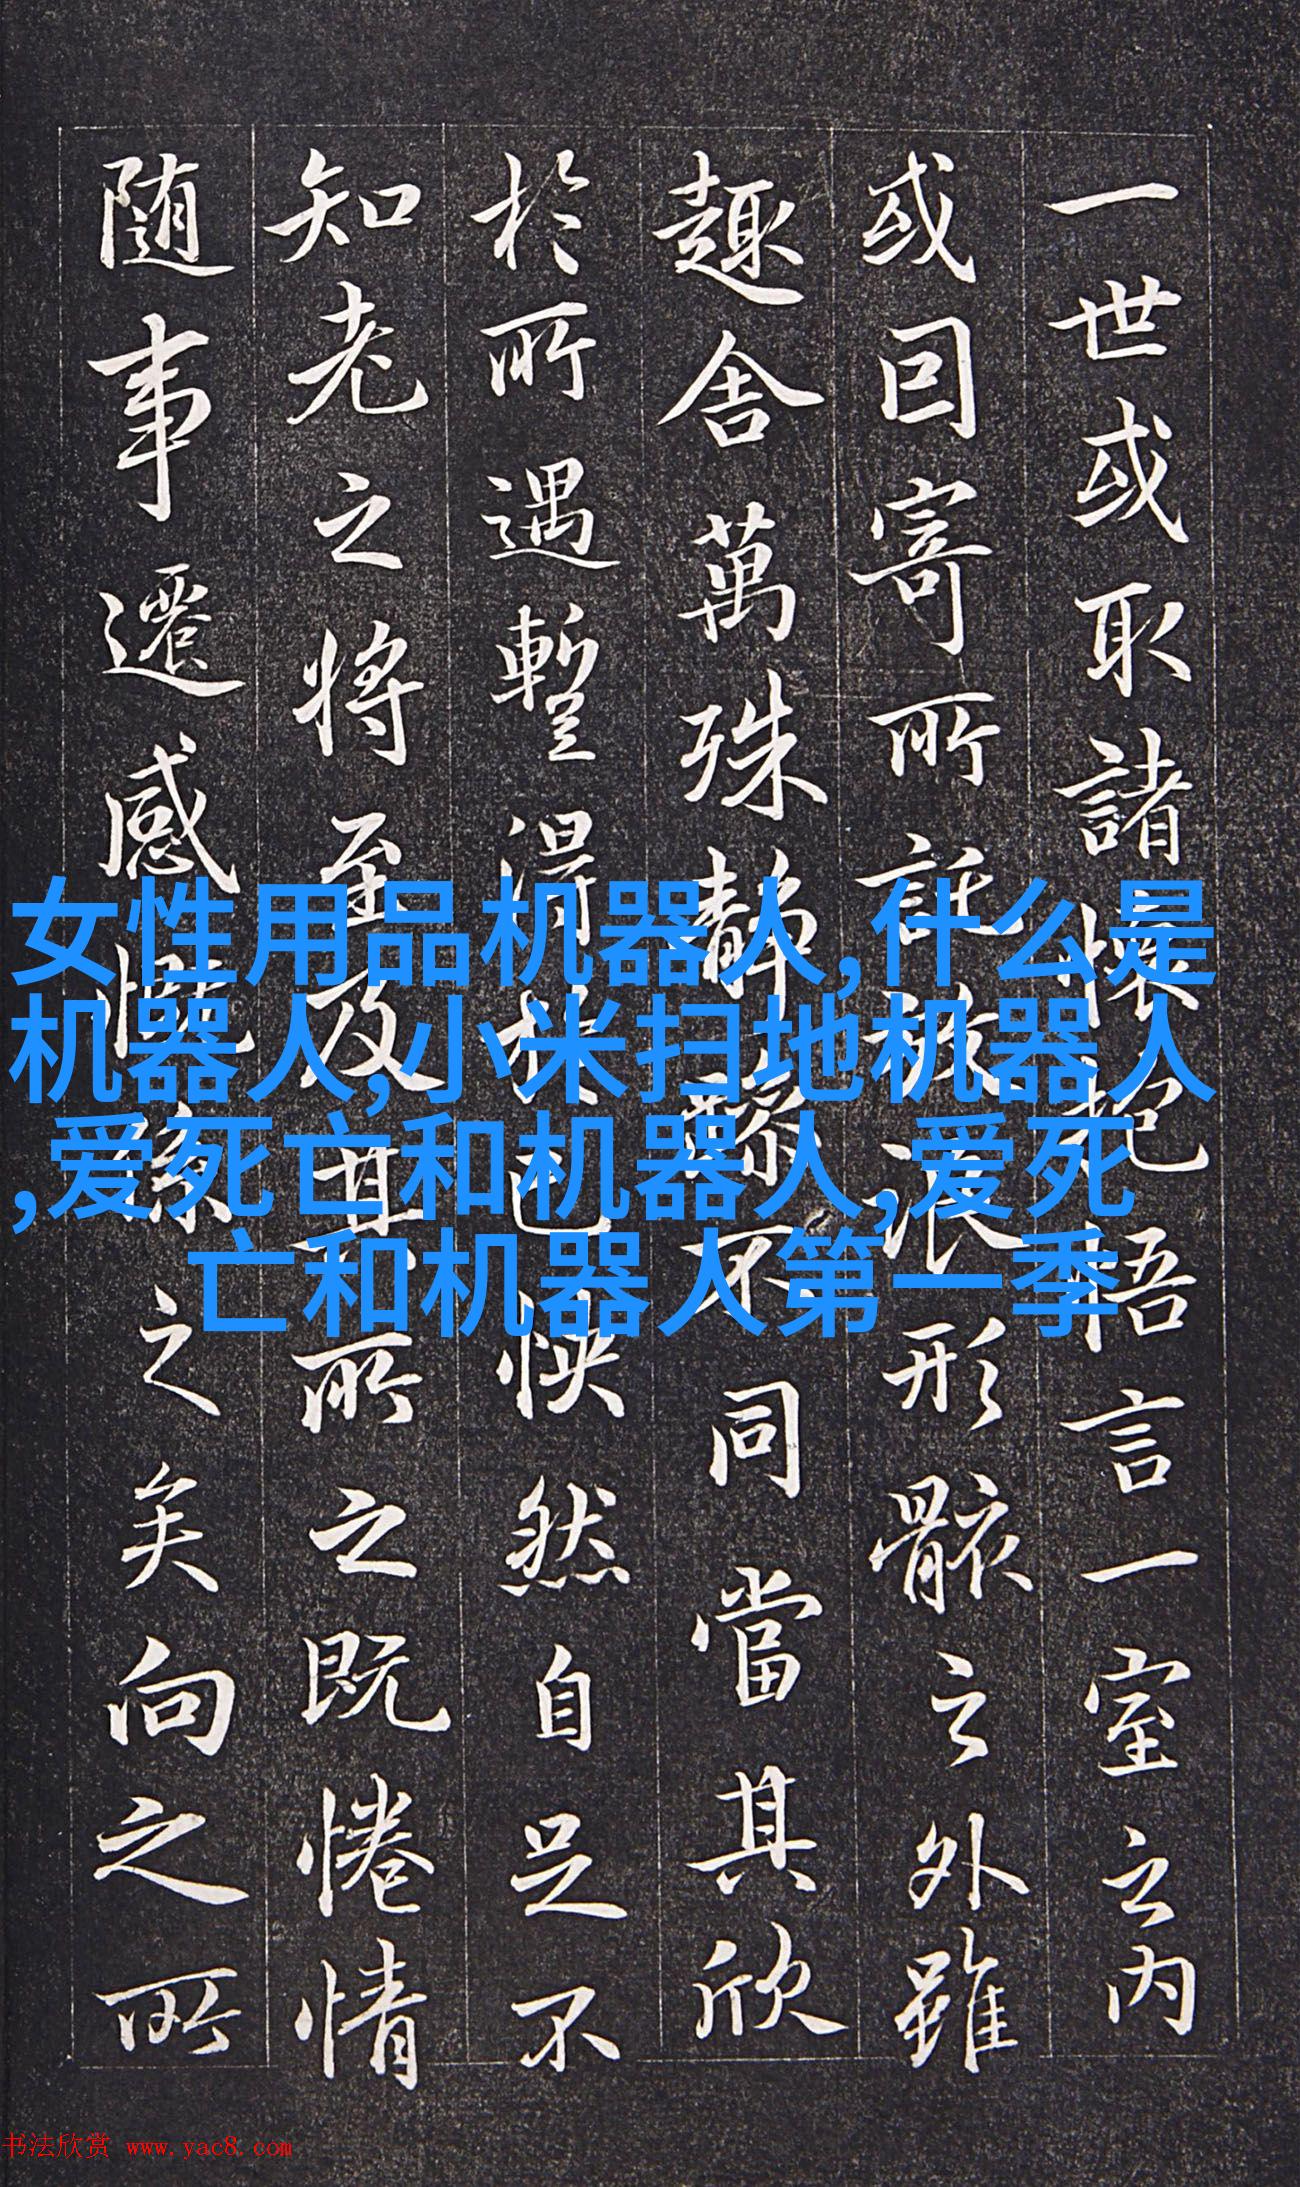 一世或取諸懷抱悟言一室之内
或因寄所託放浪形骸之外雖
趣舍萬殊靜躁不同當其欣
於所遇暫得於己怏然自足不
知老之將至及其所之既惓情
随事遷感慨係之矣向之所
女性用品机器人,什么是
机器人,小米扫地机器人
,爱死亡和机器人,爱死
亡和机器人第一季
书法欣赏 www.yac8.com